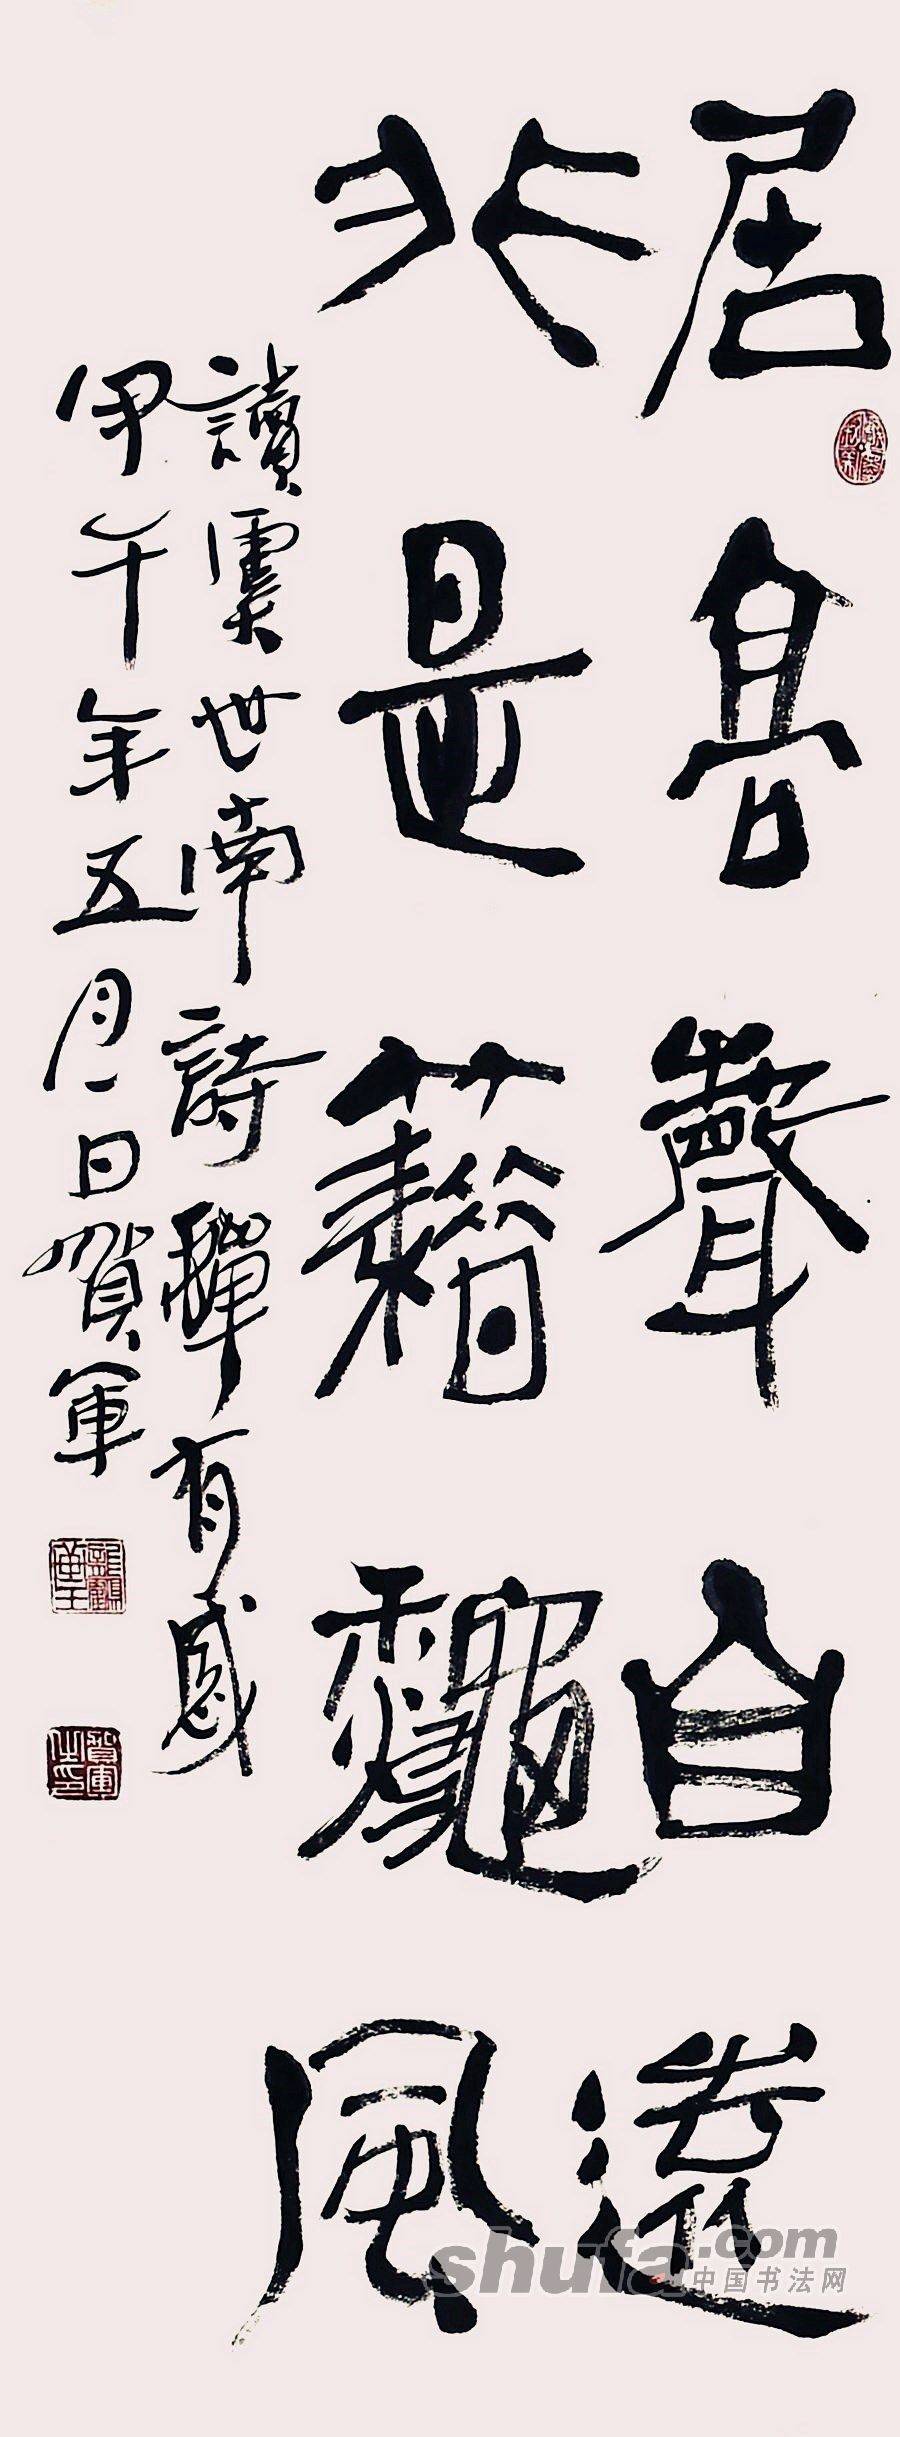 居高聲自遠
非是藉龝風
讀虞世南詩蟬有感
甲午年五月一日賀軍
shufa.com
中国书法网